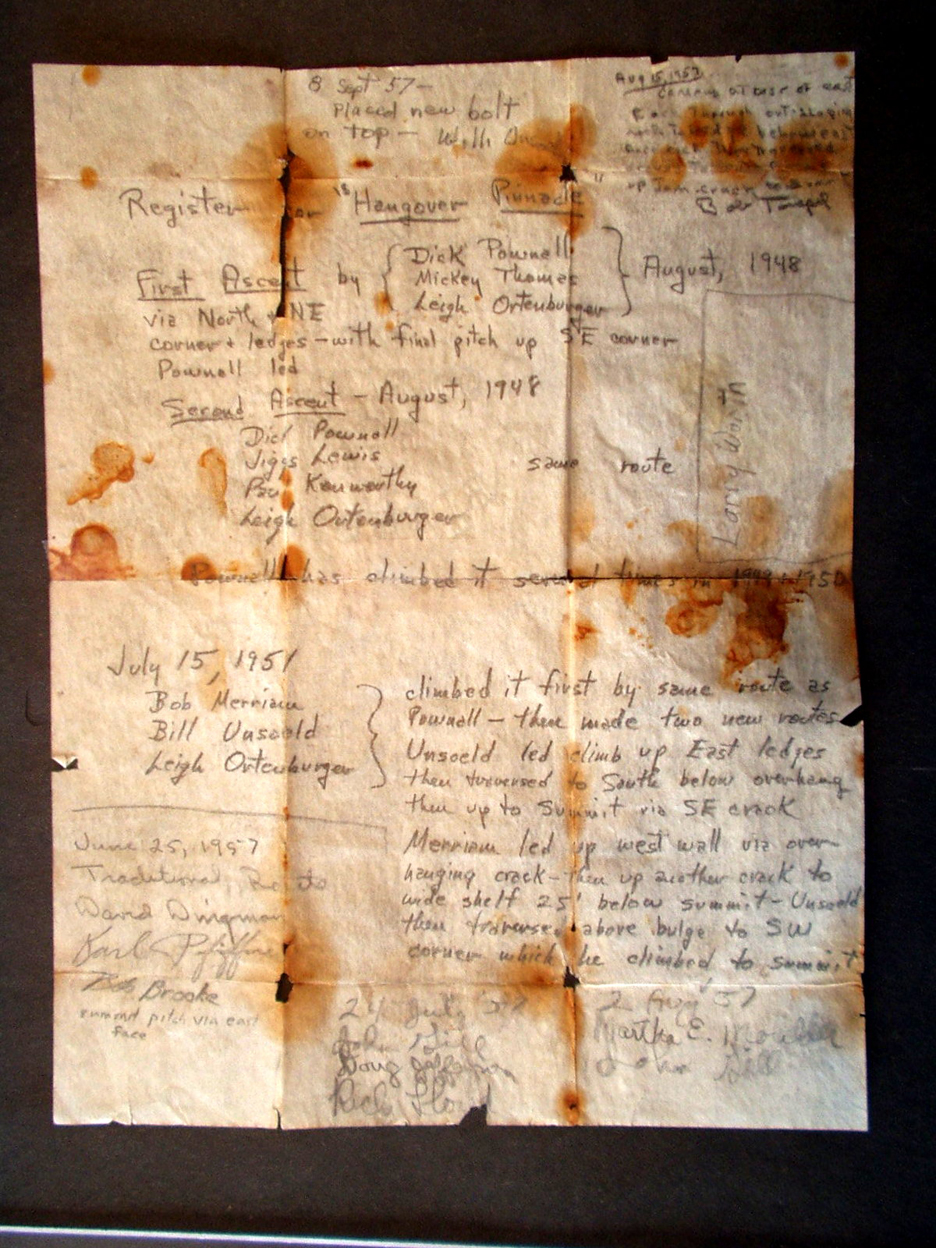 8 Sept 57 -
Placed new bolt
on top -
Aug 15, 1957
up
Register "Hangover Pinnacle"
First Ascent by
Dick Pownall
Mickey Thomas
Leigh Ortenburger
August, 1948
via North + NE
corner + ledges - with final pitch up SE corner
Pownall led
Second Ascent - August, 1948
Dick Pownall
Jiggs Lewis
Paul Kenworthy
Leigh Ortenburger
same route
Pownall has climbed it several times in 1949 + 1950
July 15, 1951
Bob Merriam
Bill Unsoeld
Leigh Ortenburger
climbed it first by same route as
Pownall - then made two new routes
Unsoeld led climb up East ledges
then traversed to South below overhang
then up to summit via SE crack
Merriam led up west wall via over-
hanging crack - then up another crack to
wide shelf 25' below summit - Unsoeld
then traversed above bulge to SW
corner which he climbed to summit
June 25, 1957
Traditional Route
David Dingman
Karl Pfiffner
Bob Brooke
summit pitch via east
face
24 July '57
John Gill
Doug
Rich
2 Aug '57
Martha E.
John Gill